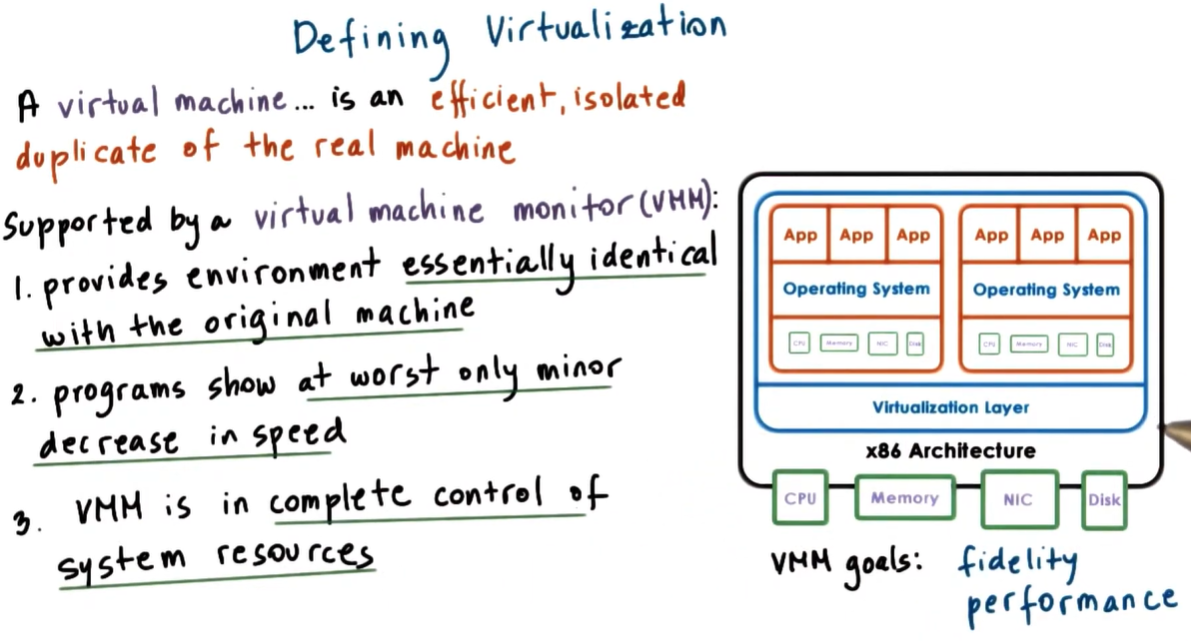 Defining Virtualization
A virtual machine... is an efficient, isolated
duplicate of the real machine
Supported by a virtual machine monitor (VMM):
1. provides environment essentially identical
with the original machine
2. programs show at worst only minor
decrease in speed
3. VMM is in complete control of
system resources
App App App App App App
Operating System Operating System
CPU Memory NIC Disk CPU Memory NIC Disk
Virtualization Layer
x86 Architecture
CPU Memory NIC Disk
VMM goals: fidelity
performance